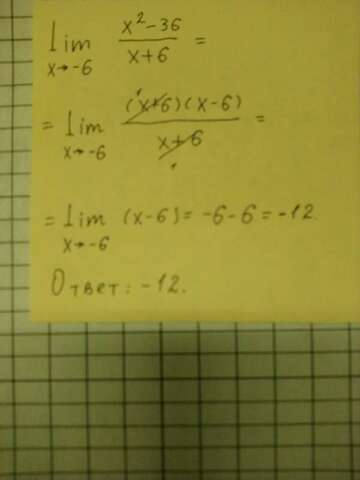 lim x→-6 (x²-36)/(x+6) =
= lim x→-6 (x+6)(x-6)/(x+6) =
= lim x→-6 (x-6) = -6-6 = -12.
Ответ: -12.